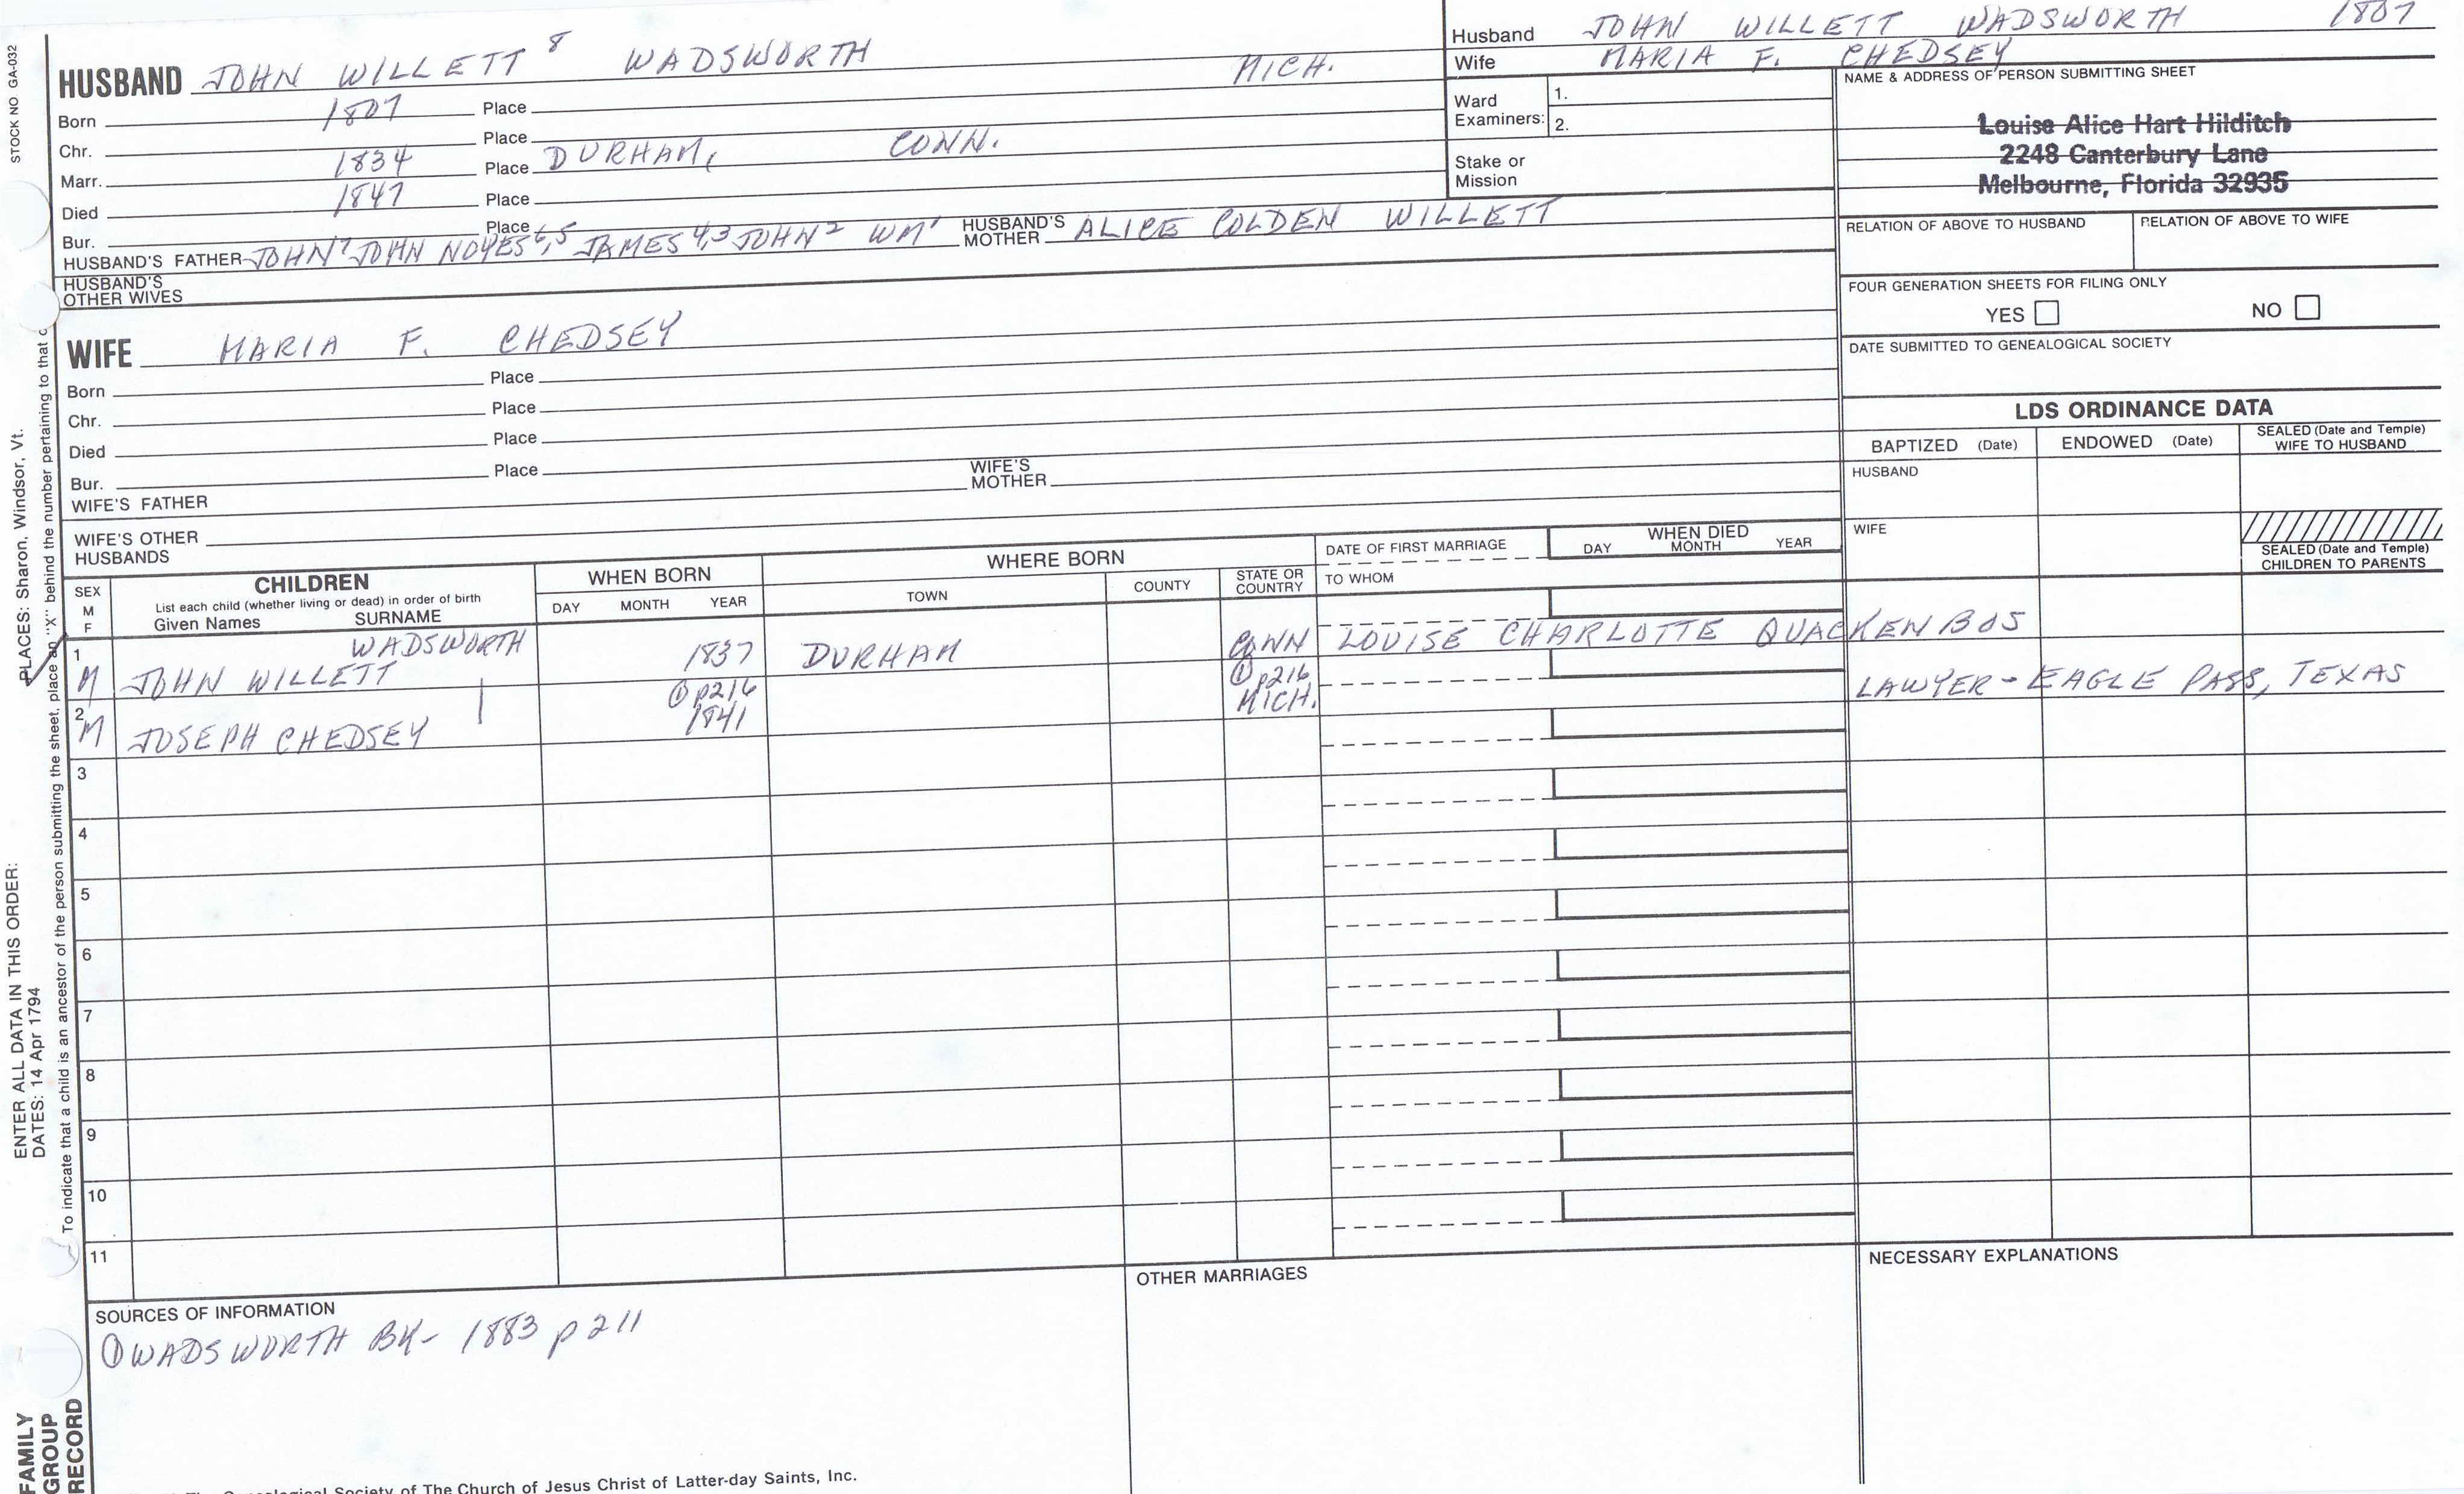 STOCK NO GA-032
HUSBAND JOHN WILLETT 8 WADSWORTH MICH.
Born 1807 Place
Chr. Place
Marr. 1834 Place DURHAM, CONN.
Died 1847 Place
Bur. Place
HUSBAND'S FATHER JOHN 7 JOHN NOYES 6,5 JAMES 4,3 JOHN 2 WM 1 HUSBAND'S MOTHER ALICE COLDEN WILLETT
HUSBAND'S OTHER WIVES
Husband JOHN WILLETT WADSWORTH 1807
Wife MARIA F. CHEDSEY
Ward Examiners: 1.
2.
Stake or Mission
NAME & ADDRESS OF PERSON SUBMITTING SHEET
Louise Alice Hart Hilditch
2248 Canterbury Lane
Melbourne, Florida 32935
RELATION OF ABOVE TO HUSBAND RELATION OF ABOVE TO WIFE
FOUR GENERATION SHEETS FOR FILING ONLY
YES NO
DATE SUBMITTED TO GENEALOGICAL SOCIETY
WIFE MARIA F. CHEDSEY
Born Place
Chr. Place
Died Place
Bur. Place
WIFE'S FATHER WIFE'S MOTHER
WIFE'S OTHER HUSBANDS
LDS ORDINANCE DATA
BAPTIZED (Date) ENDOWED (Date) SEALED (Date and Temple) WIFE TO HUSBAND
HUSBAND
WIFE
SEALED (Date and Temple) CHILDREN TO PARENTS
SEX M F
CHILDREN
List each child (whether living or dead) in order of birth
Given Names SURNAME
WHEN BORN
DAY MONTH YEAR
WHERE BORN
TOWN COUNTY STATE OR COUNTRY
DATE OF FIRST MARRIAGE
TO WHOM
WHEN DIED
DAY MONTH YEAR
1 M JOHN WILLETT WADSWORTH 1837 DURHAM CONN LOUISE CHARLOTTE QUACKENBOS
① p216 ① p216 LAWYER - EAGLE PASS, TEXAS
2 M JOSEPH CHEDSEY | 1841 MICH.
3
4
5
6
7
8
9
10
11
SOURCES OF INFORMATION
① WADSWORTH BK- 1883 p211
OTHER MARRIAGES
NECESSARY EXPLANATIONS
Society of The Church of Jesus Christ of Latter-day Saints, Inc.
ENTER ALL DATA IN THIS ORDER:
DATES: 14 Apr 1794
PLACES: Sharon, Windsor, Vt.
To indicate that a child is an ancestor of the person submitting the sheet, place an "X" behind the number pertaining to that
FAMILY
GROUP
RECORD